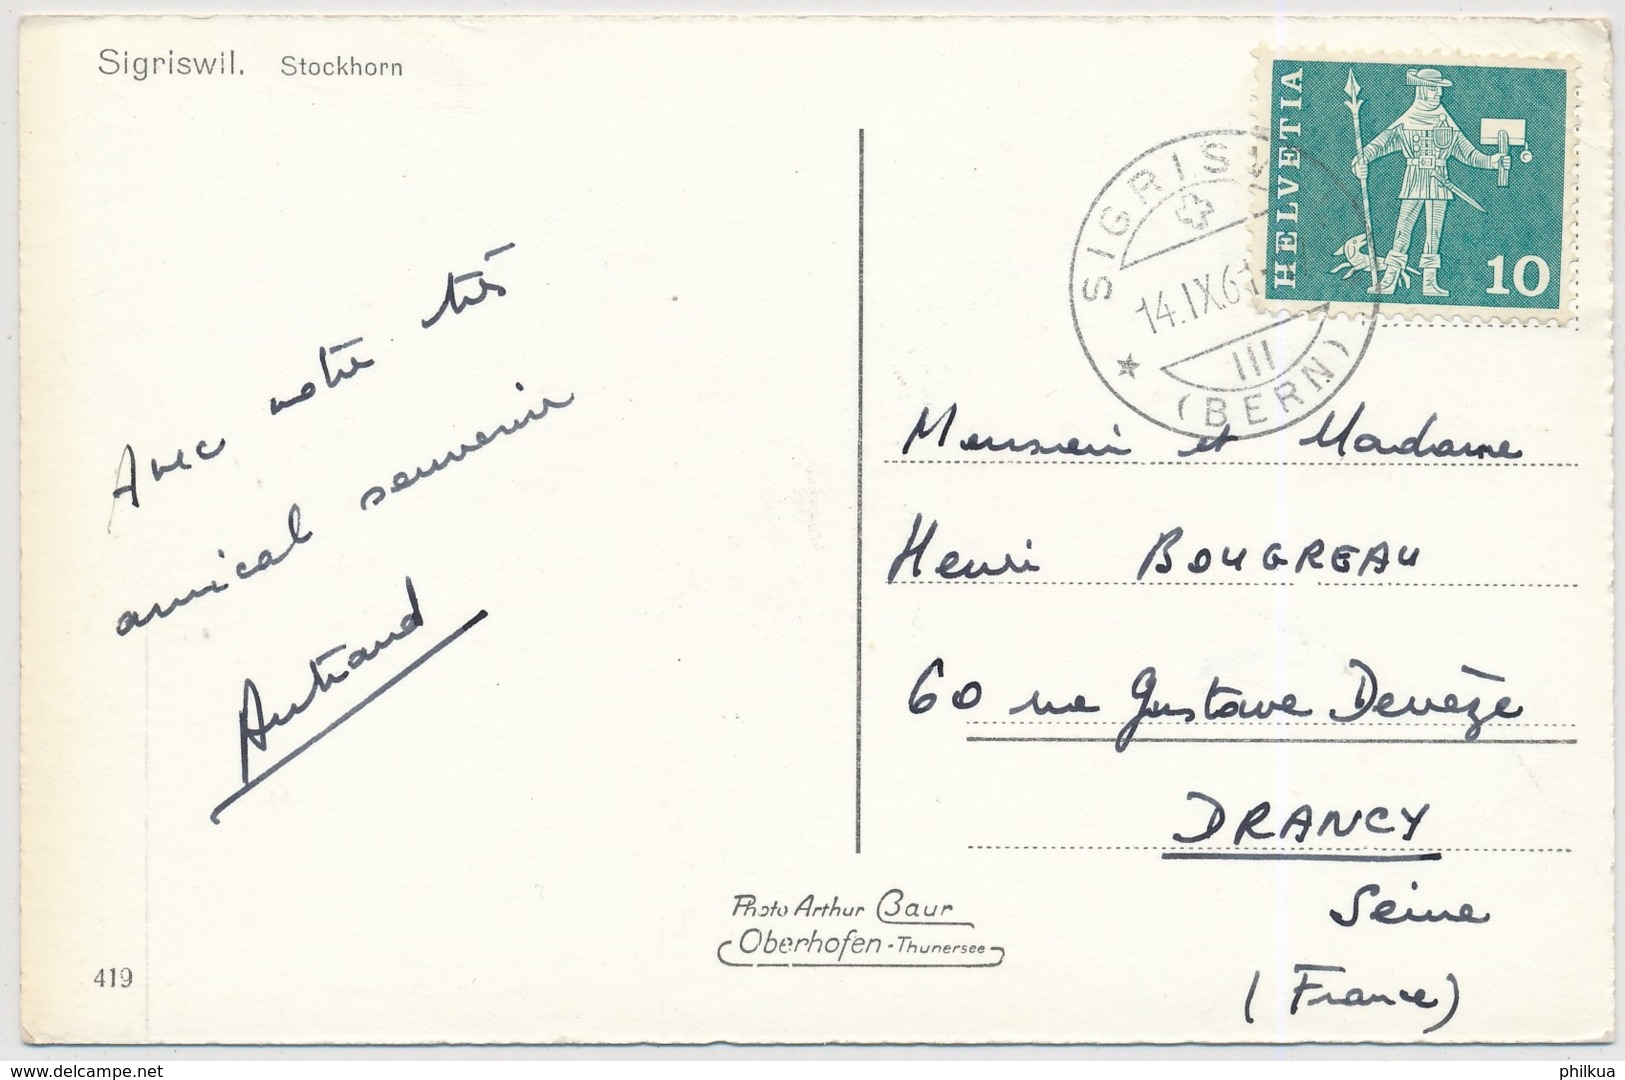 Sigriswil. Stockhorn
HELVETIA
10
SIGRISW
14.IX.6
III
(BERN)
Avec notre très
amical souvenir
Autrand
Monsieur et Madame
Henri BOUGREAU
60 rue Gustave Denèze
DRANCY
Seine
(France)
Photo Arthur Baur
Oberhofen - Thunersee
419
delcampe.net
philkua